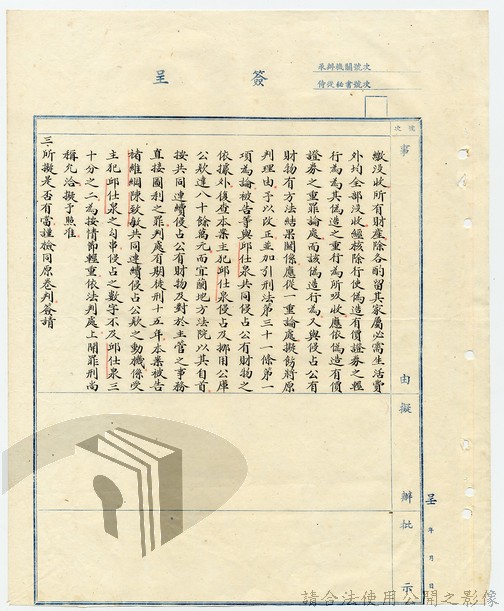 承辦機關號次
侍從秘書號次
簽呈
號次
事由擬辦
批示
呈 年 月 日
繳沒收所有財產除各酌留其家屬必需生活費
外均全部沒收經核除行使偽造有價證券之輕
行為為其偽造之重行為所吸收應依偽造有價
證券之重罪論處而該偽造行為又與侵占公有
財物有方法結果關係應從一重論處擬飭將原
判理由予以改正並加引刑法第三十一條第一
項為論被告等與邱仕泉共同侵占公有財物之
依據外復查本案主犯邱仕泉侵占及挪用公庫
公款達八十餘萬元而宜蘭地方法院以其自首
按共同連續侵占公有財物及對於主管之事務
直接圖利之罪判處有期徒刑十五年本案被告
褚維綱陳欽敏共同連續侵占公款之動機係受
主犯邱仕泉之勾串侵占之數字不及邱仕泉三
十分之二為按情節輕重依法判處上開罪刑尚
稱允洽擬予照准
三、所擬是否有當謹檢同原卷判簽請
請合法使用公開之影像